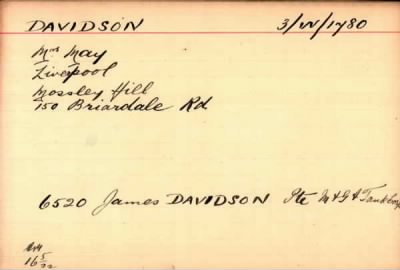 DAVIDSON 3/W/1780
Mrs May
Liverpool
Mossley Hill
150 Briardale Rd
6520 James DAVIDSON Pte M & G A Tank Corps
16 5/22